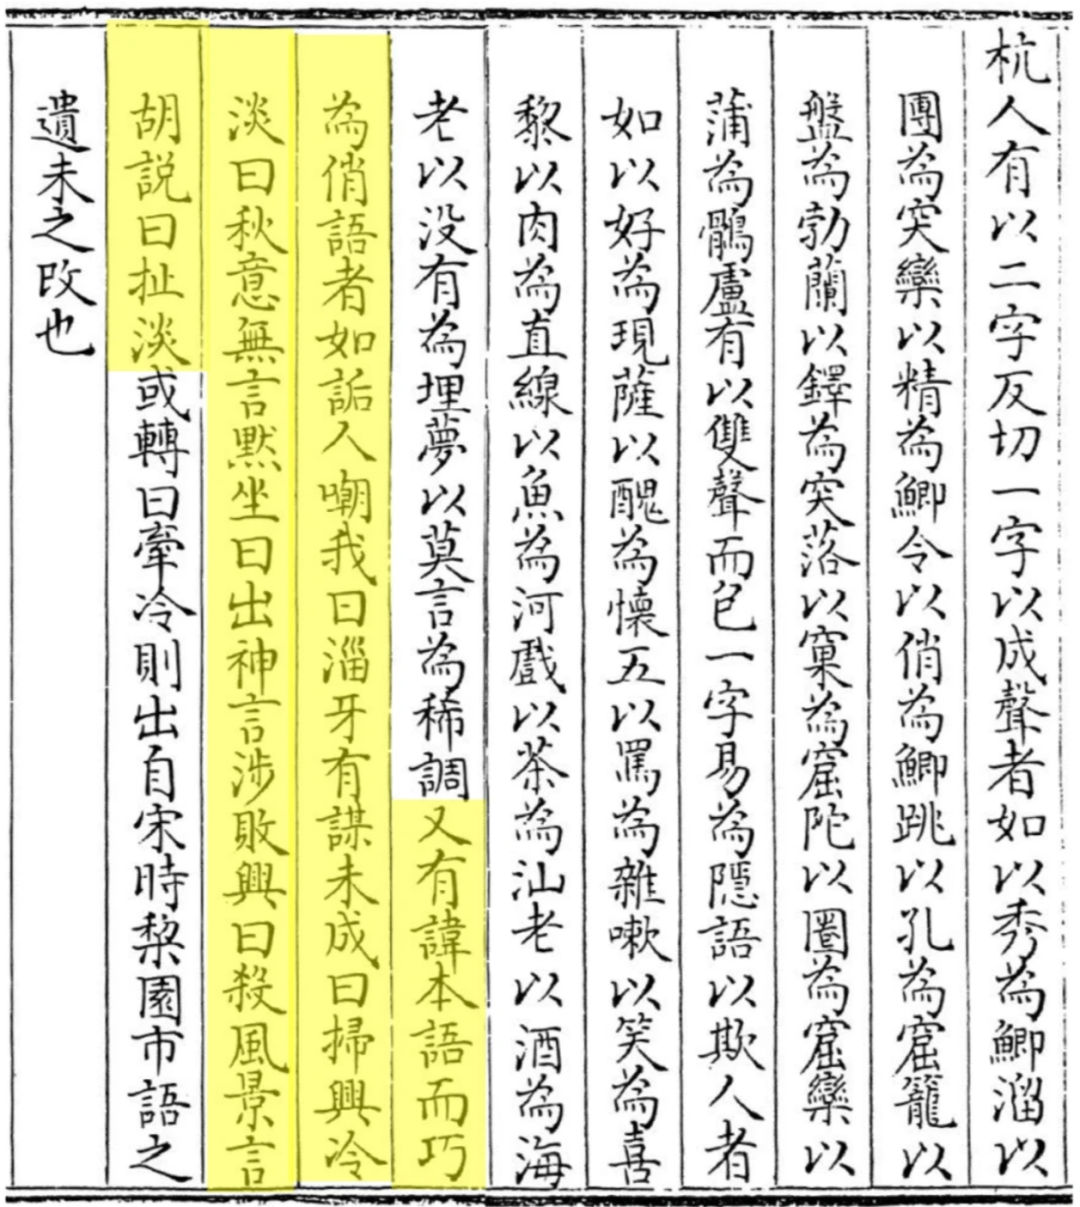 杭人有以二字反切一字以成聲者如以秀為鯽溜以
團為突欒以精為鯽令以俏為鯽跳以孔為窟籠以
盤為勃蘭以鐸為突落以窠為窟陀以圈為窟欒以
蒲為鶻盧有以雙聲而包一字易為隱語以欺人者
如以好為現薩以醜為懷五以罵為雜嗽以笑為喜
黎以肉為直線以魚為河戲以茶為汕老以酒為海
老以没有為埋夢以莫言為稀調又有諱本語而巧
為俏語者如詬人嘲我曰淄牙有謀未成曰掃興冷
淡曰秋意無言默坐曰出神言涉敗興曰殺風景言
胡説曰扯淡或轉曰牽冷則出自宋時梨園市語之
遺未之改也